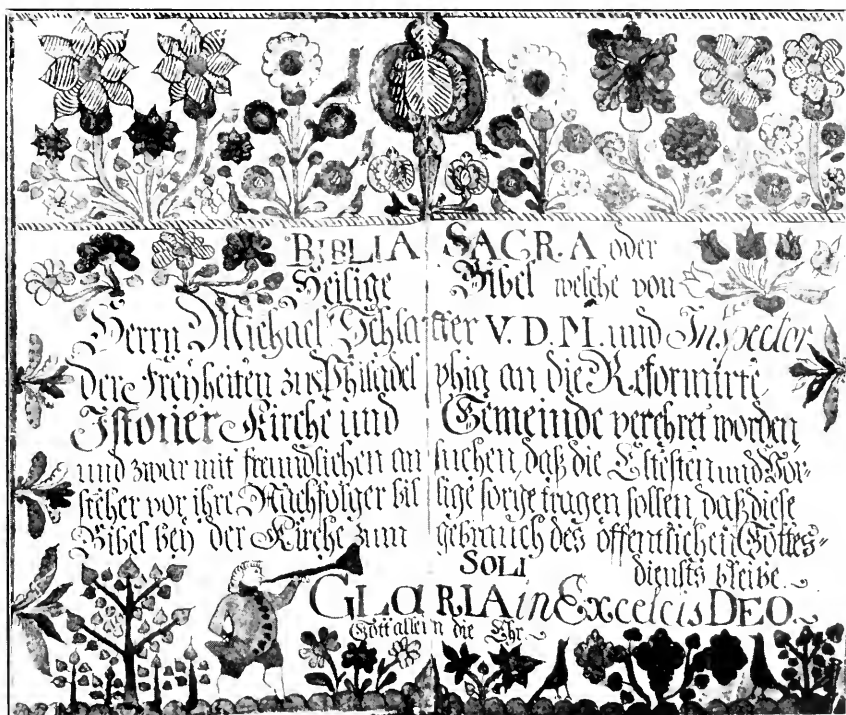 BIBLIA SACRA oder
Heilige Bibel welche von
Herrn Michael Schlatter V. D. M. und Inspector
der Freyheiten zu Philadelphia an die Reformirte
Kirche und Gemeinde verehret worden,
und zwar mit freundlichen ansuchen, daß die Eltesten und Vor-
steher vor ihre Nachfolger billige sorge tragen sollen, daß diese
Bibel bey der Kirche zum gebrauch des öffentlichen Gottes-
diensts bleibe.
SOLI
GLORIA in Excelcis DEO.
Gott allein die Ehr.